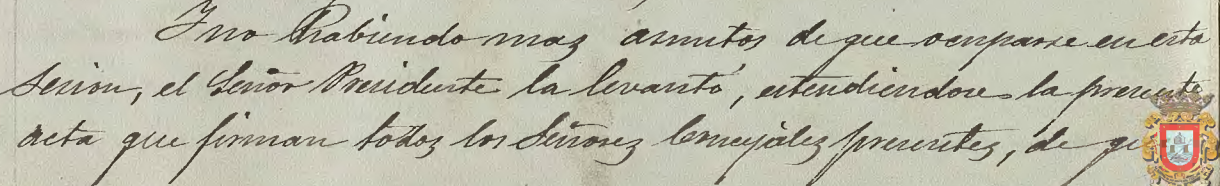 Y no habiendo mas asuntos de que ocuparse en esta
sesion, el Señor Presidente la levantó, estendiendose la presente
acta que firman todos los Señores Concejales presentes, de